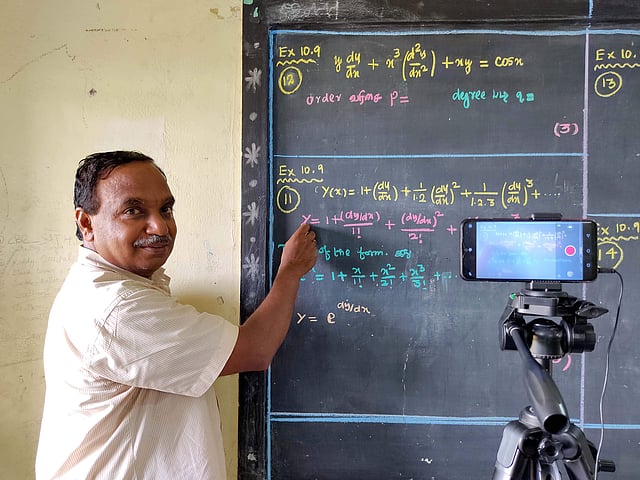 Ex 10.9
12
y dy/dx + x³ (d²y/dx²) + xy = cosx
order வரிசை P =
degree படி q =
(3)
Ex 10.9
11
Y(x) = 1+(dy/dx) + 1/1·2 (dy/dx)² + 1/1·2·3 (dy/dx)³ + ....
Y = 1 + (dy/dx)/1! + (dy/dx)²/2! +
of the form.
= 1 + x/1! + x²/2! + x³/3! + ..
Y = e^dy/dx
Ex 10.
13
Ex 10.
14